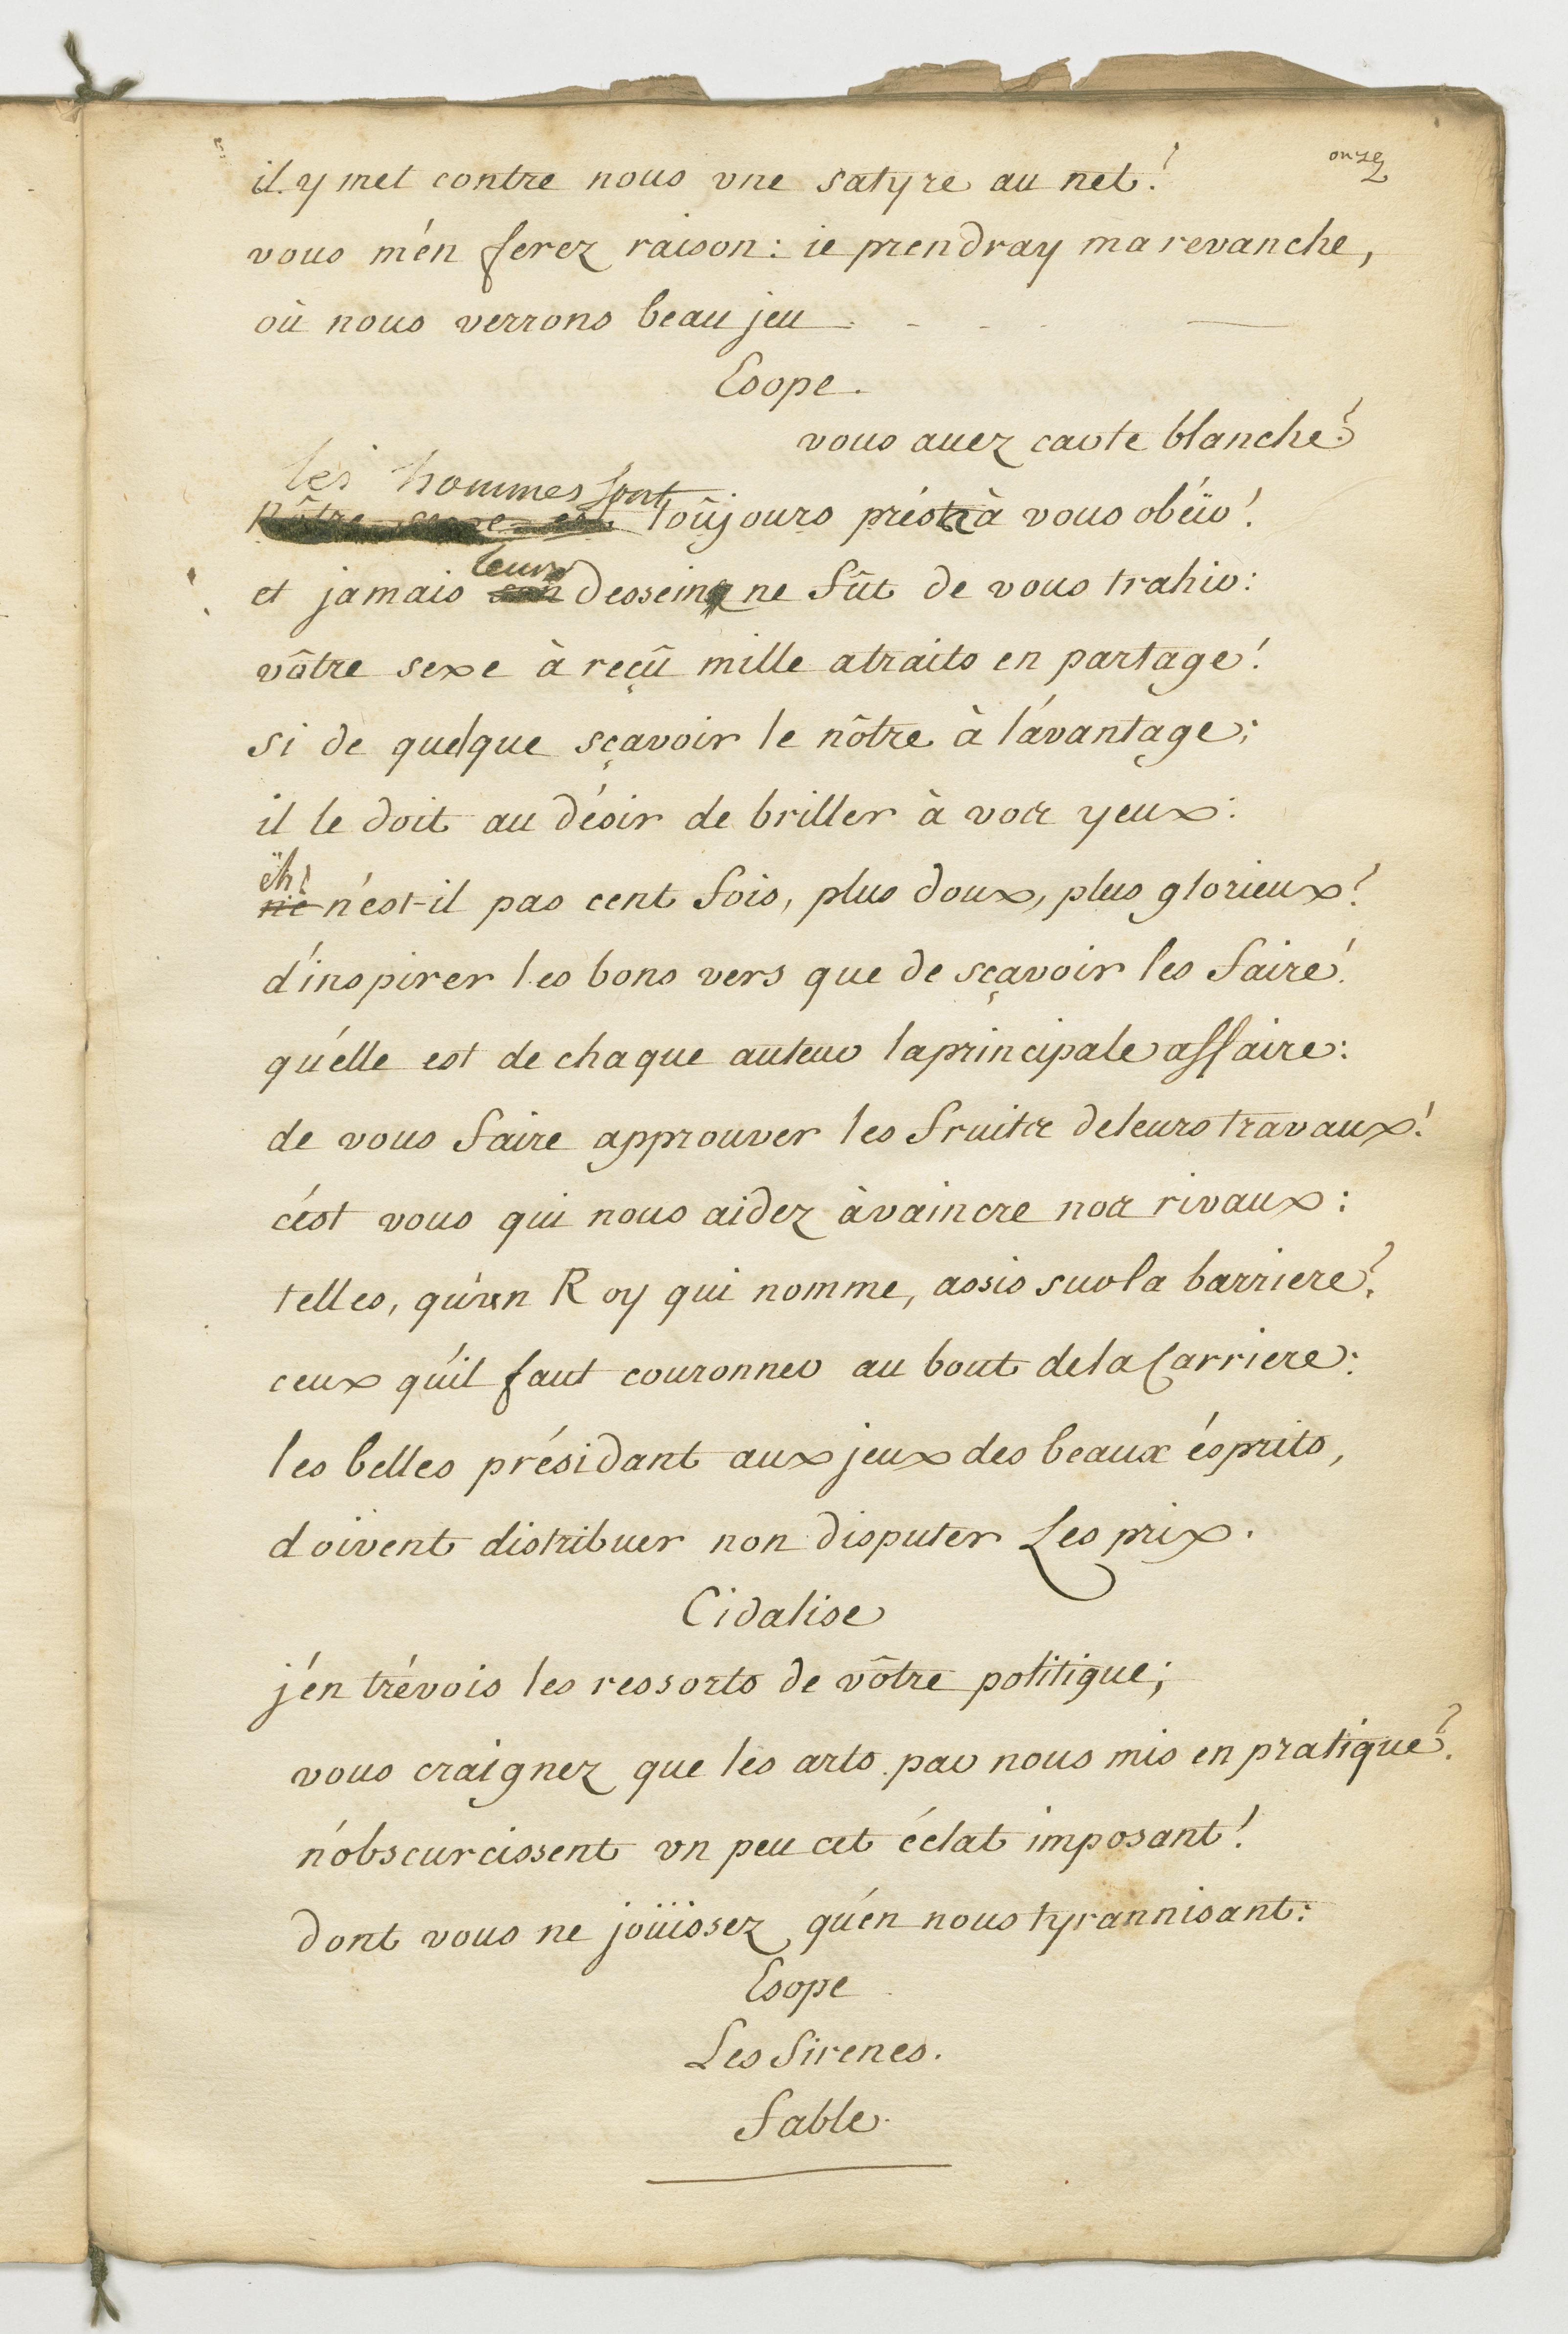 onze
il y met contre nous vne satyre au net!
vous m'én ferez raison: ie prendray ma revanche,
où nous verrons beau jeu - - - —
Esope.
vous auez carte blanche?
les hommes sont
Nôtre sexe est toûjours préstz à vous obéïr!
leurs
et jamais son desseinz ne fût de vous trahir:
vôtre sexe à reçû mille atraits en partage!
si de quelque sçavoir le nôtre à l'ávantage;
il le doit au désir de briller à vos yeux:
ëh!
né n'ést-il pas cent fois, plus doux, plus glorieux?
d'inspirer les bons vers que de sçavoir les faire!
qu'élle est de chaque auteur la principale affaire:
de vous faire approuver les fruits de leurs travaux!
c'ést vous qui nous aidez à vaincre nos rivaux:
telles, qu'un Roy qui nomme, assis sur la barriere?
ceux qu'il faut couronner au bout de la Carriere:
les belles présidant aux jeux des beaux ésprits,
doivent distribuer non disputer Les prix.
Cidalise
j'én trévois les ressorts de vôtre politique;
vous craignez que les arts par nous mis en pratique?
n'obscurcissent vn peu cet éclat imposant!
dont vous ne joüissez qu'én nous tyrannisant:
Esope
Les Sirenes.
fable.